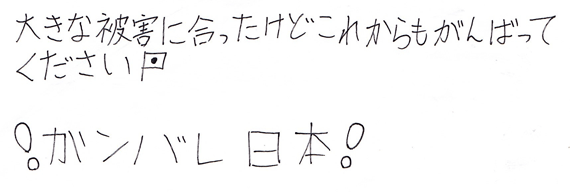 大きな被害に合ったけどこれからもがんばって
ください
!ガンバレ 日本!